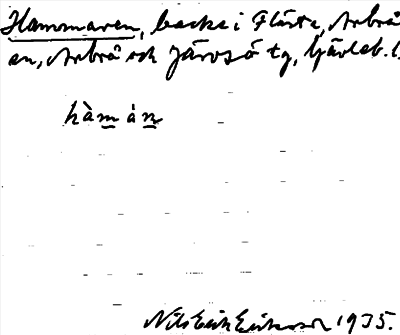 Hammaren, backe i Flästa, Arbrå
sn, Arbrå och Järvsö tg, Gävleb. l.
hàmàn
Nils Erik Eriksson 1935.